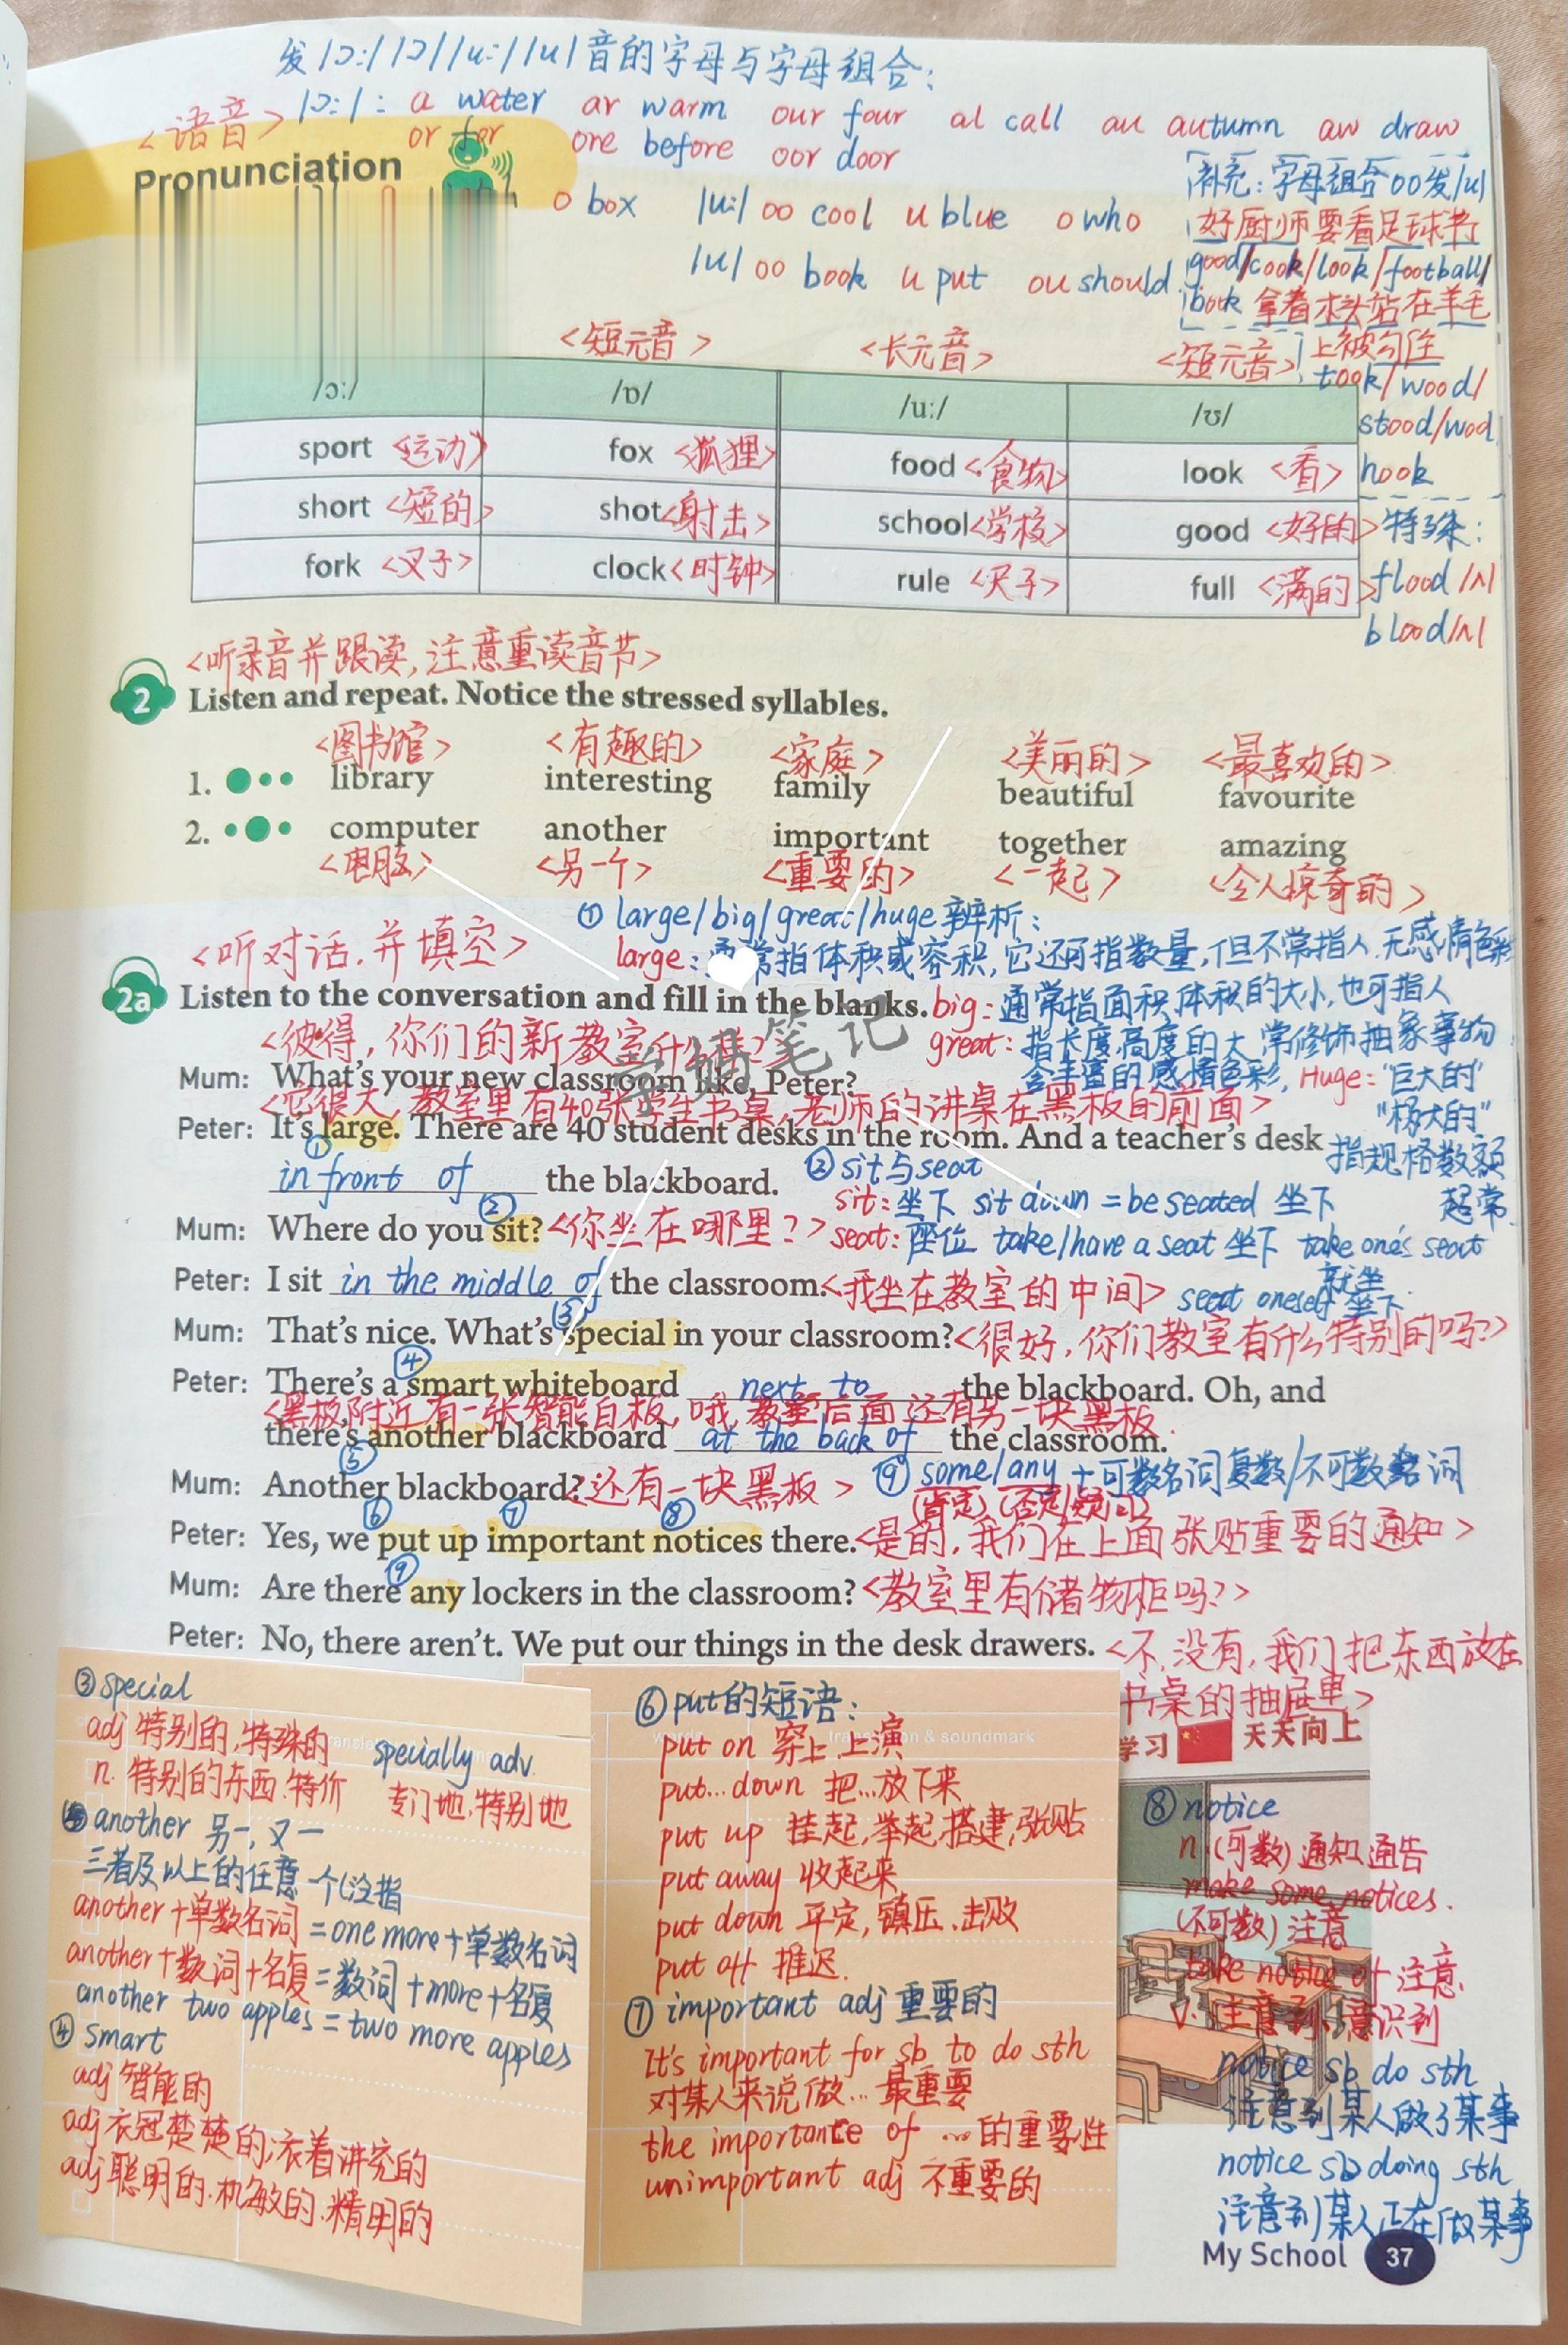 发/ɔ:/ /ɔ/ /u:/ /u/音的字母与字母组合:
<语音> /ɔ:/: a water ar warm our four al call au autumn aw draw
or for ore before oor door
Pronunciation
o box /u:/ oo cool u blue o who
/u/ oo book u put ou should
补充:字母组合oo发/u/
好厨师要看足球书
good/cook/look/football/
book 拿着木头站在羊毛
上被勾住
took/wood/
stood/wool
hook
特殊:
flood /ʌ/
blood /ʌ/
<短元音> <长元音> <短元音>
/ɔː/ /ɒ/ /uː/ /ʊ/
sport <运动> fox <狐狸> food <食物> look <看>
short <短的> shot <射击> school <学校> good <好的>
fork <叉子> clock <时钟> rule <尺子> full <满的>
<听录音并跟读,注意重读音节>
2 Listen and repeat. Notice the stressed syllables.
<图书馆> <有趣的> <家庭> <美丽的> <最喜欢的>
1. library interesting family beautiful favourite
2. computer another important together amazing
<电脑> <另一个> <重要的> <一起> <令人惊奇的>
① large/big/great/huge辨析:
large: 常指体积或容积,它还可指数量,但不常指人.无感情色彩
<听对话,并填空>
2a Listen to the conversation and fill in the blanks.
big: 通常指面积体积的大小,也可指人
great: 指长度高度的大 常修饰抽象事物
含丰富的感情色彩, Huge: "巨大的"
"极大的"
指规格数额
起常.
<彼得,你们的新教室什么样?>
Mum: What's your new classroom like, Peter?
<它很大,教室里有40张学生书桌,老师的讲桌在黑板的前面>
Peter: It's large. There are 40 student desks in the room. And a teacher's desk
① in front of the blackboard.
② sit与seat
sit: 坐下 sit down = be seated 坐下
seat: 座位 take/have a seat 坐下 take one's seat
就坐
seat oneself 坐下
②
Mum: Where do you sit? <你坐在哪里?>
Peter: I sit in the middle of the classroom. <我坐在教室的中间>
③
Mum: That's nice. What's special in your classroom? <很好,你们教室有什么特别的吗?>
④
Peter: There's a smart whiteboard next to the blackboard. Oh, and
<黑板附近有一张智能白板,哦,教室后面还有另一块黑板.
there's another blackboard at the back of the classroom.
⑤
Mum: Another blackboard? <还有一块黑板>
⑨ some/any +可数名词复数/不可数名词
(肯定) (否定/疑问)
⑥ ⑦ ⑧
Peter: Yes, we put up important notices there. <是的,我们在上面张贴重要的通知>
⑨
Mum: Are there any lockers in the classroom? <教室里有储物柜吗?>
Peter: No, there aren't. We put our things in the desk drawers. <不,没有,我们把东西放在
书桌的抽屉里>
学妈笔记
学习 天天向上
③ special
adj 特别的,特殊的
n. 特别的东西.特价
specially adv.
专门地,特别地
⑤ another 另一,又一
三者及以上的任意一个(泛指
another+单数名词=one more+单数名词
another+数词+名复=数词+more+名复
another two apples=two more apples
④ smart
adj 智能的
adj 衣冠楚楚的;衣着讲究的
adj 聪明的.机敏的.精明的
words translation & soundmark
⑥ put的短语:
put on 穿上,上演
put...down 把...放下来
put up 挂起,举起,搭建,张贴
put away 收起来
put down 平定,镇压.击败
put off 推迟.
⑦ important adj 重要的
It's important for sb to do sth
对某人来说做... 最重要
the importance of ...的重要性
unimportant adj 不重要的
⑧ notice
n.(可数)通知.通告
make some notices.
(不可数)注意
take notice of 注意.
v. 注意到、意识到
notice sb do sth
注意到某人做了某事
notice sb doing sth
注意到某人正在做某事
My School 37